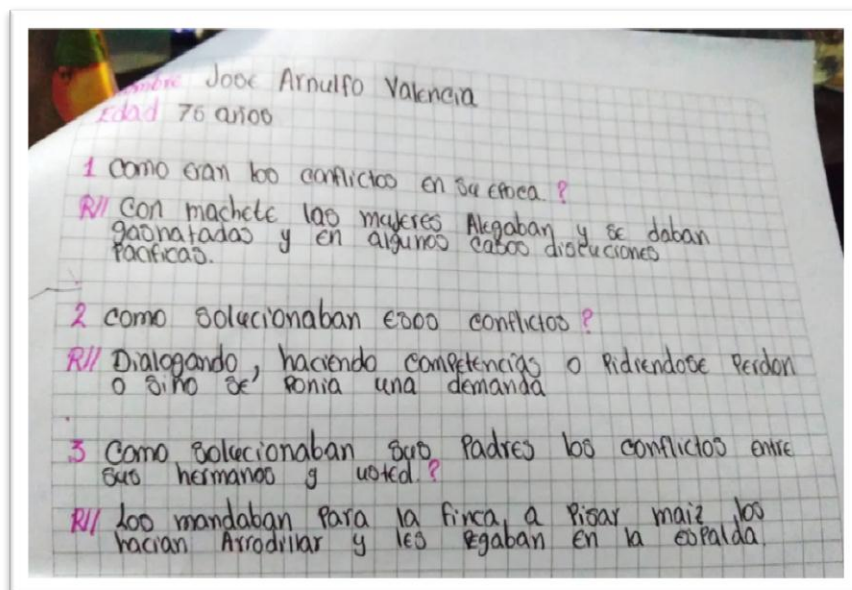 Nombre Jose Arnulfo Valencia
Edad 76 años
1 como eran los conflictos en su epoca ?
R// con machete las mujeres Alegaban y se daban
gasnatadas y en algunos casos discuciones
Pacificas.
2 como solucionaban esos conflictos ?
R// Dialogando, haciendo competencias o Pidiendose Perdon
o sino se ponia una demanda
3 Como solucionaban sus Padres los conflictos entre
sus hermanos y usted.?
R// Los mandaban Para la finca, a Pisar maiz los
hacian Arrodillar y les Pegaban en la espalda.